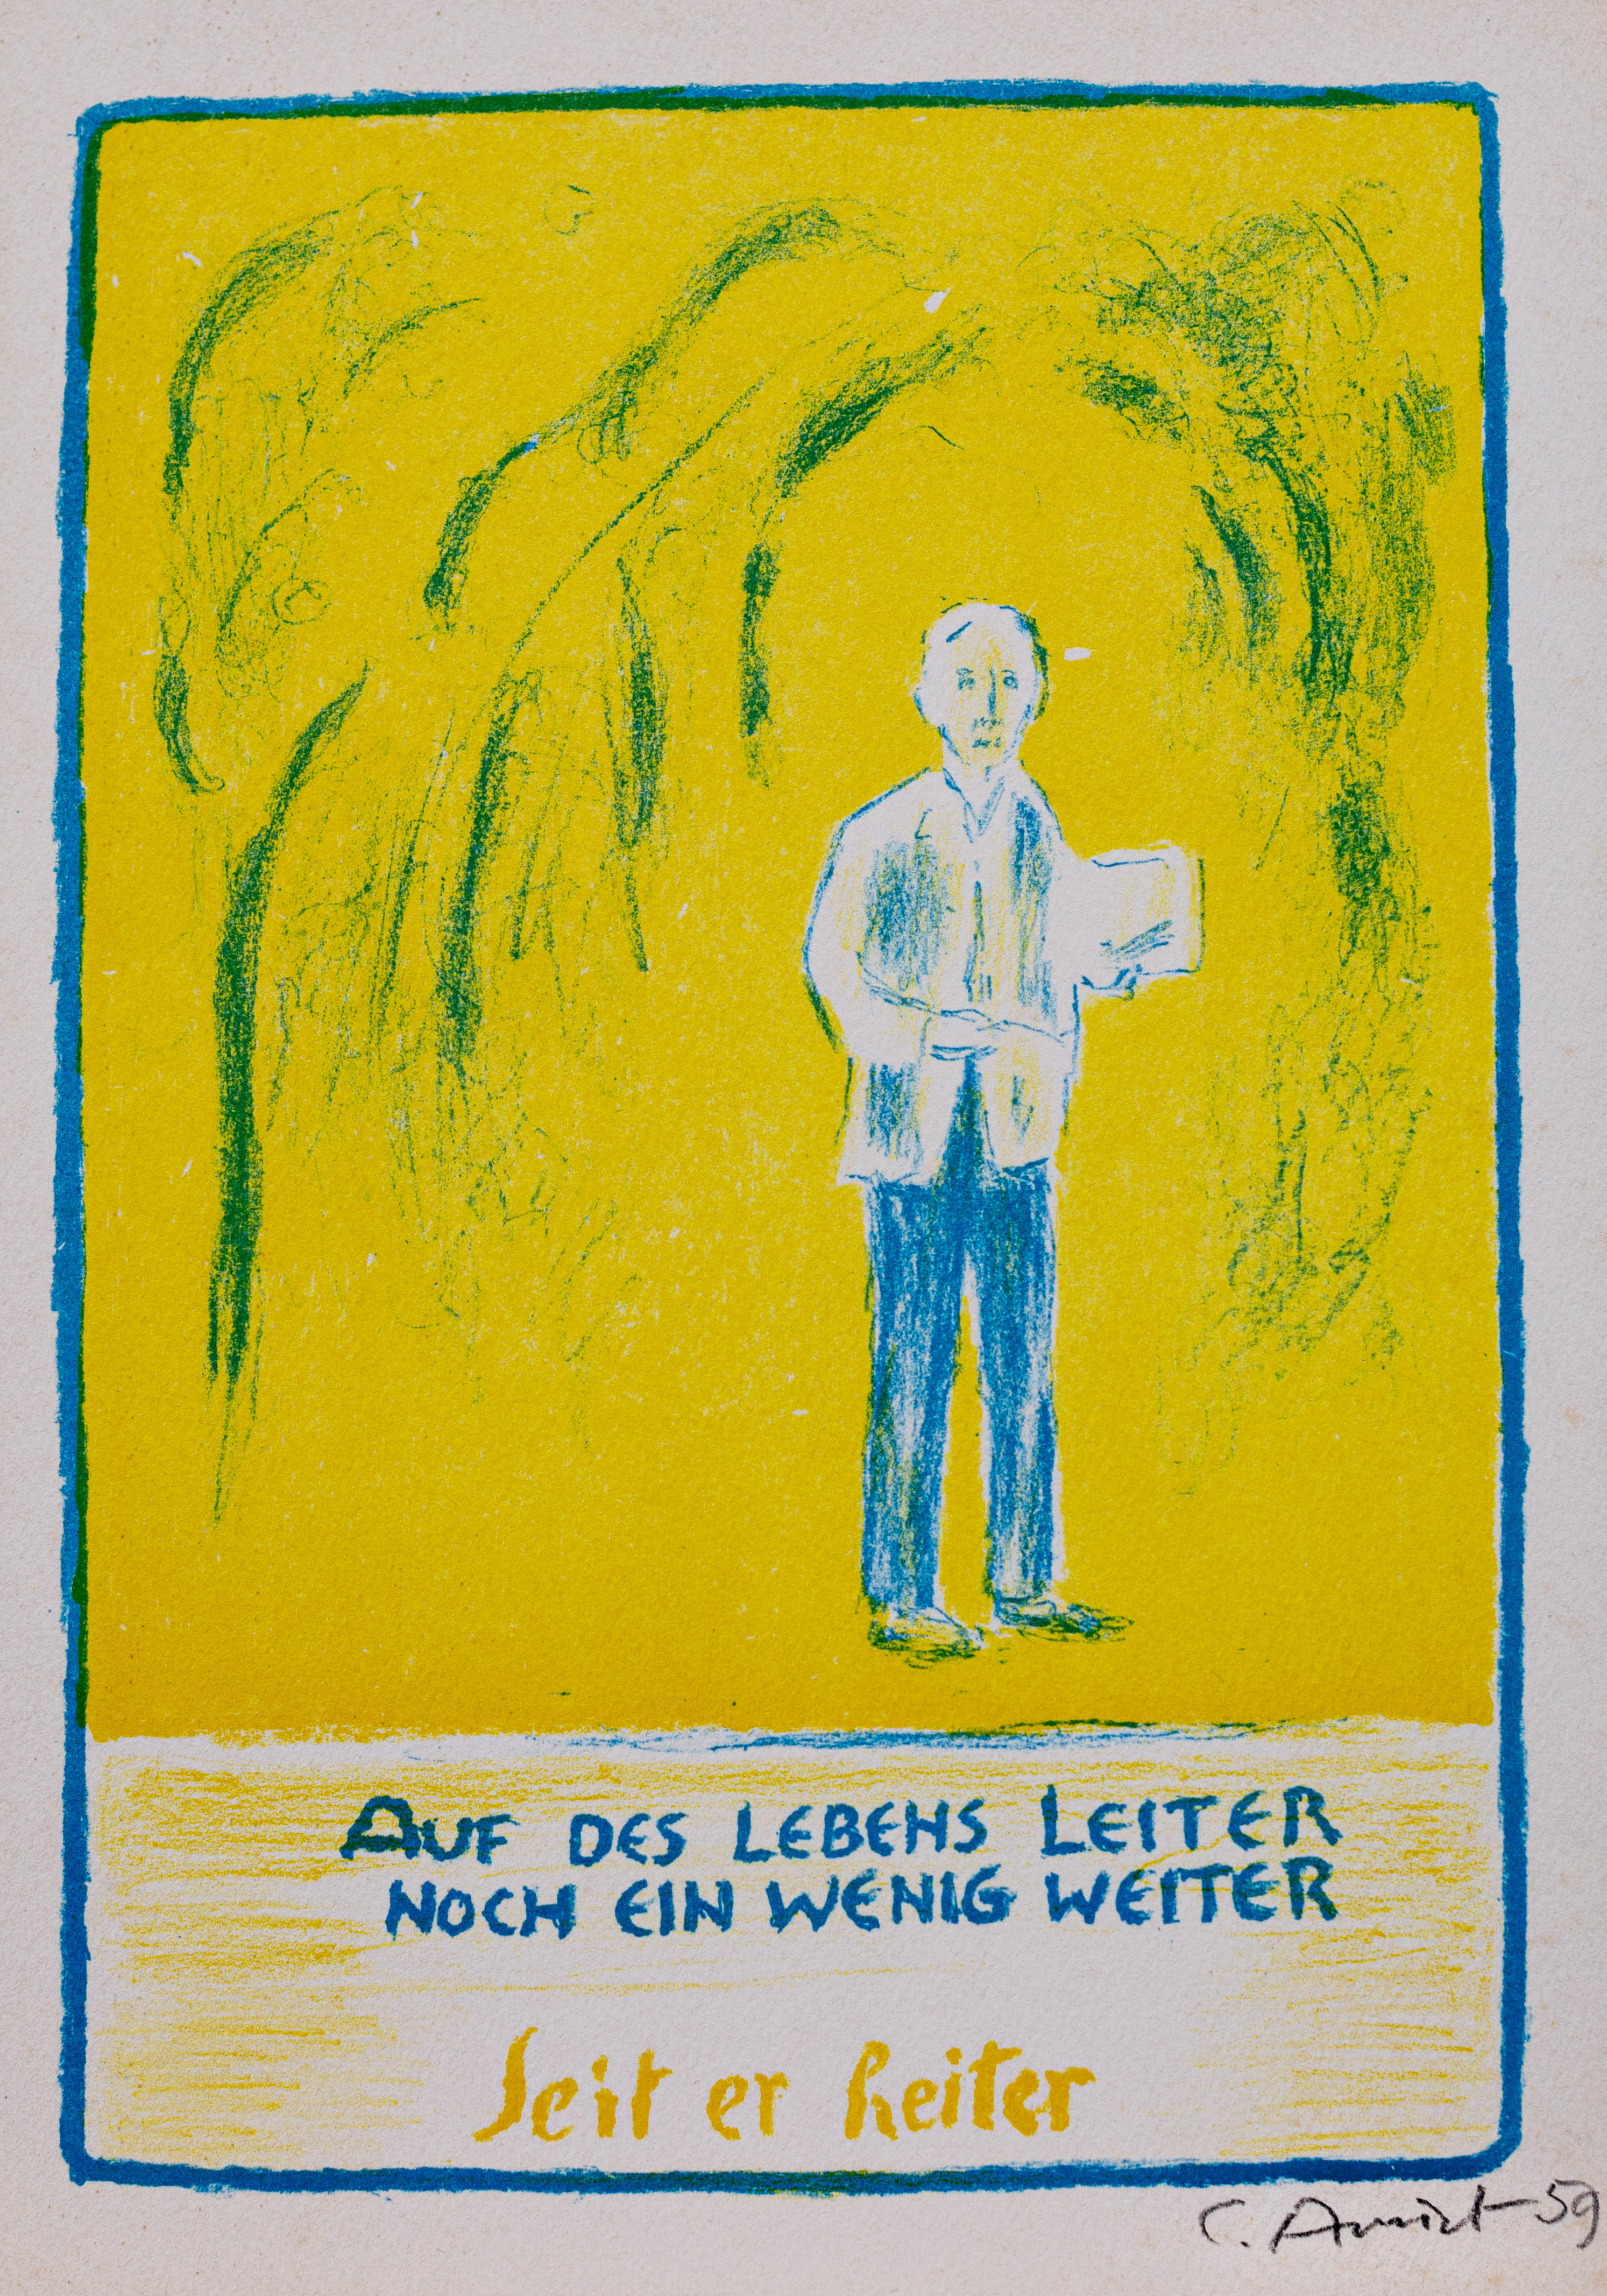 AUF DES LEBENS LEITER
NOCH EIN WENIG WEITER
seit er heiter
C. Amiet 59